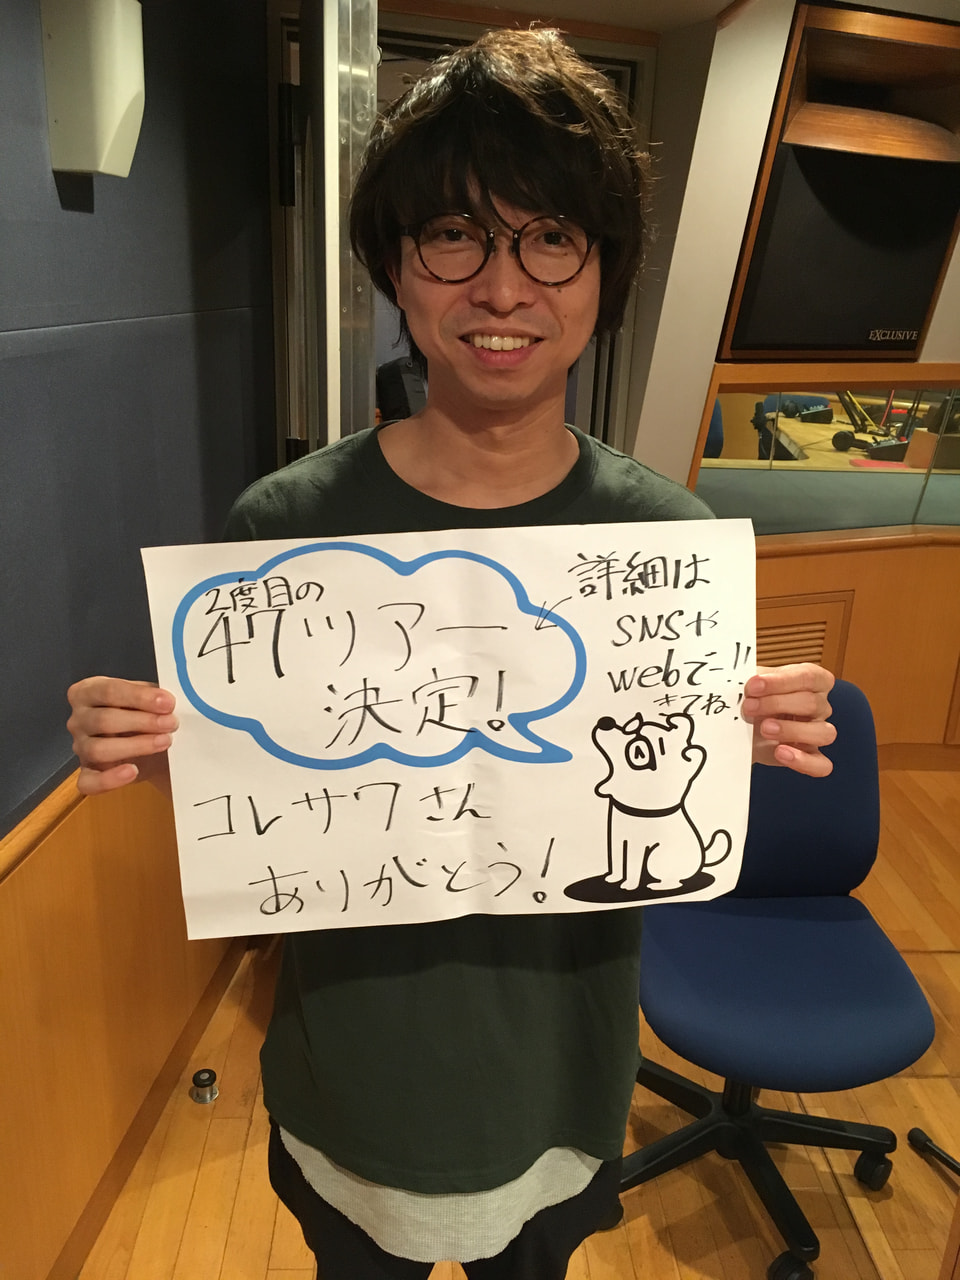 2度目の
47ツアー
決定!
詳細は
SNSや
webでー!!
きてね!
コレサワさん
ありがとう!
EXCLUSIVE